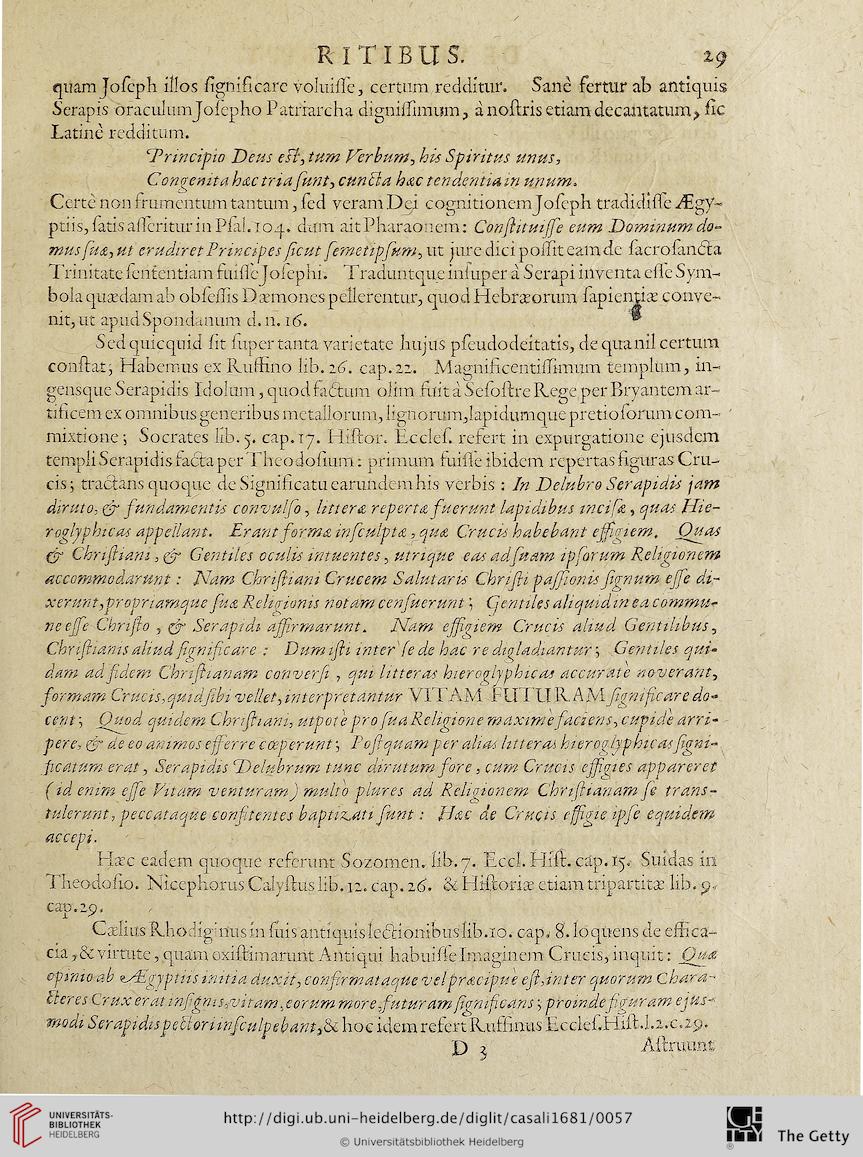 RITIBUS. 29
quam Joſeph illos ſignificare voluiſſe, certum redditur. Sanè fertur ab antiquis
Serapis oraculum Joſepho Patriarcha digniſſimum, à noſtris etiam decantatum, ſic
Latinè redditum.
Principio Deus eſt, tum Verbum, his Spiritus unus,
Congenita hæc tria ſunt, cuncta hæc tendentia in unum.
Certè non frumentum tantum, ſed veram Dei cognitionem Joſeph tradidiſſe Ægy-
ptiis, ſatis aſſeritur in Pſal. 104. dum ait Pharaonem: Conſtituiſſe eum Dominum do-
mus ſuæ, ut erudiret Principes ſicut ſemetipſum, ut jure dici poſſit eam de ſacroſancta
Trinitate ſententiam fuiſſe Joſephi. Traduntque inſuper à Serapi inventa eſſe Sym-
bola quædam ab obſeſſis Dæmones pellerentur, quod Hebræorum ſapientiæ conve-
nit, ut apud Spondanum d. n. 16.
Sed quicquid ſit ſuper tanta varietate hujus pſeudodeitatis, de qua nil certum
conſtat; Habemus ex Ruffino lib. 26. cap. 22. Magnificentiſſimum templum, in-
gensque Serapidis Idolum, quod factum olim fuit à Seſoſtre Rege per Bryantem ar-
tificem ex omnibus generibus metallorum, lignorum, lapidumque pretioſorum com-
mixtione; Socrates lib. 5. cap. 17. Hiſtor. Eccleſ. refert in expurgatione ejusdem
templi Serapidis facta per Theodoſium: primum fuiſſe ibidem repertas figuras Cru-
cis; tractans quoque de Significatu earundem his verbis: In Delubro Serapidis jam
diruto, & fundamentis convulſo, litteræ repertæ fuerunt lapidibus inciſæ, quas Hie-
roglyphicas appellant. Erant formæ inſculptæ, quæ Crucis habebant effigiem. Quas
& Chriſtiani, & Gentiles oculis intuentes, utrique eas ad ſuam ipſorum Religionem
accommodarunt: Nam Chriſtiani Crucem Salutaris Chriſti paſſionis ſignum eſſe di-
xerunt, propriamque ſuæ Religionis notam cenſuerunt; Gentiles aliquid in ea commu-
ne eſſe Chriſto, & Serapidi affirmarunt. Nam effigiem Crucis aliud Gentilibus,
Chriſtianis aliud ſignificare: Dum iſti inter ſe de hac re digladiantur; Gentiles qui-
dam ad fidem Chriſtianam converſi, qui litteras hieroglyphicas accuratè noverant,
formam Crucis, quid ſibi vellet, interpretantur VITAM FUTURAM ſignificare do-
cent; Quod quidem Chriſtiani, utpotè pro ſua Religione maximè faciens, cupidè arri-
pere, & de eo animos efferre cœperunt; Poſtquam per alias litteras hieroglyphicas ſigni-
ficatum erat, Serapidis Delubrum tunc dirutum fore, cum Crucis effigies appareret
(id enim eſſe Vitam venturam) multò plures ad Religionem Chriſtianam ſe trans-
tulerunt, peccataque confitentes baptizati ſunt: Hæc de Crucis effigie ipſe equidem
accepi.
Hæc eadem quoque referunt Sozomen. lib. 7. Eccl. Hiſt. cap. 15. Suidas in
Theodoſio. Nicephorus Calyſtus lib. 12. cap. 26. & Hiſtoriæ etiam tripartitæ lib. 9.
cap. 29.
Cælius Rhodiginus in ſuis antiquis lectionibus lib. 10. cap. 8. loquens de effica-
cia, & virtute, quam exiſtimarunt Antiqui habuiſſe Imaginem Crucis, inquit: Quæ
opinio ab Ægyptiis initia duxit, confirmataque vel præcipuè eſt, inter quorum Chara-
cteres Crux erat inſignis, vitam, eorum more, futuram ſignificans; proinde figuram ejus-
modi Serapidis pectori inſculpebant, & hoc idem refert Ruffinus Eccleſ. Hiſt. l. 2. c. 29.
D 3 Aſtruunt
UNIVERSITÄTS-
BIBLIOTHEK
HEIDELBERG
http://digi.ub.uni-heidelberg.de/diglit/casali1681/0057
© Universitätsbibliothek Heidelberg
GETTY
The Getty